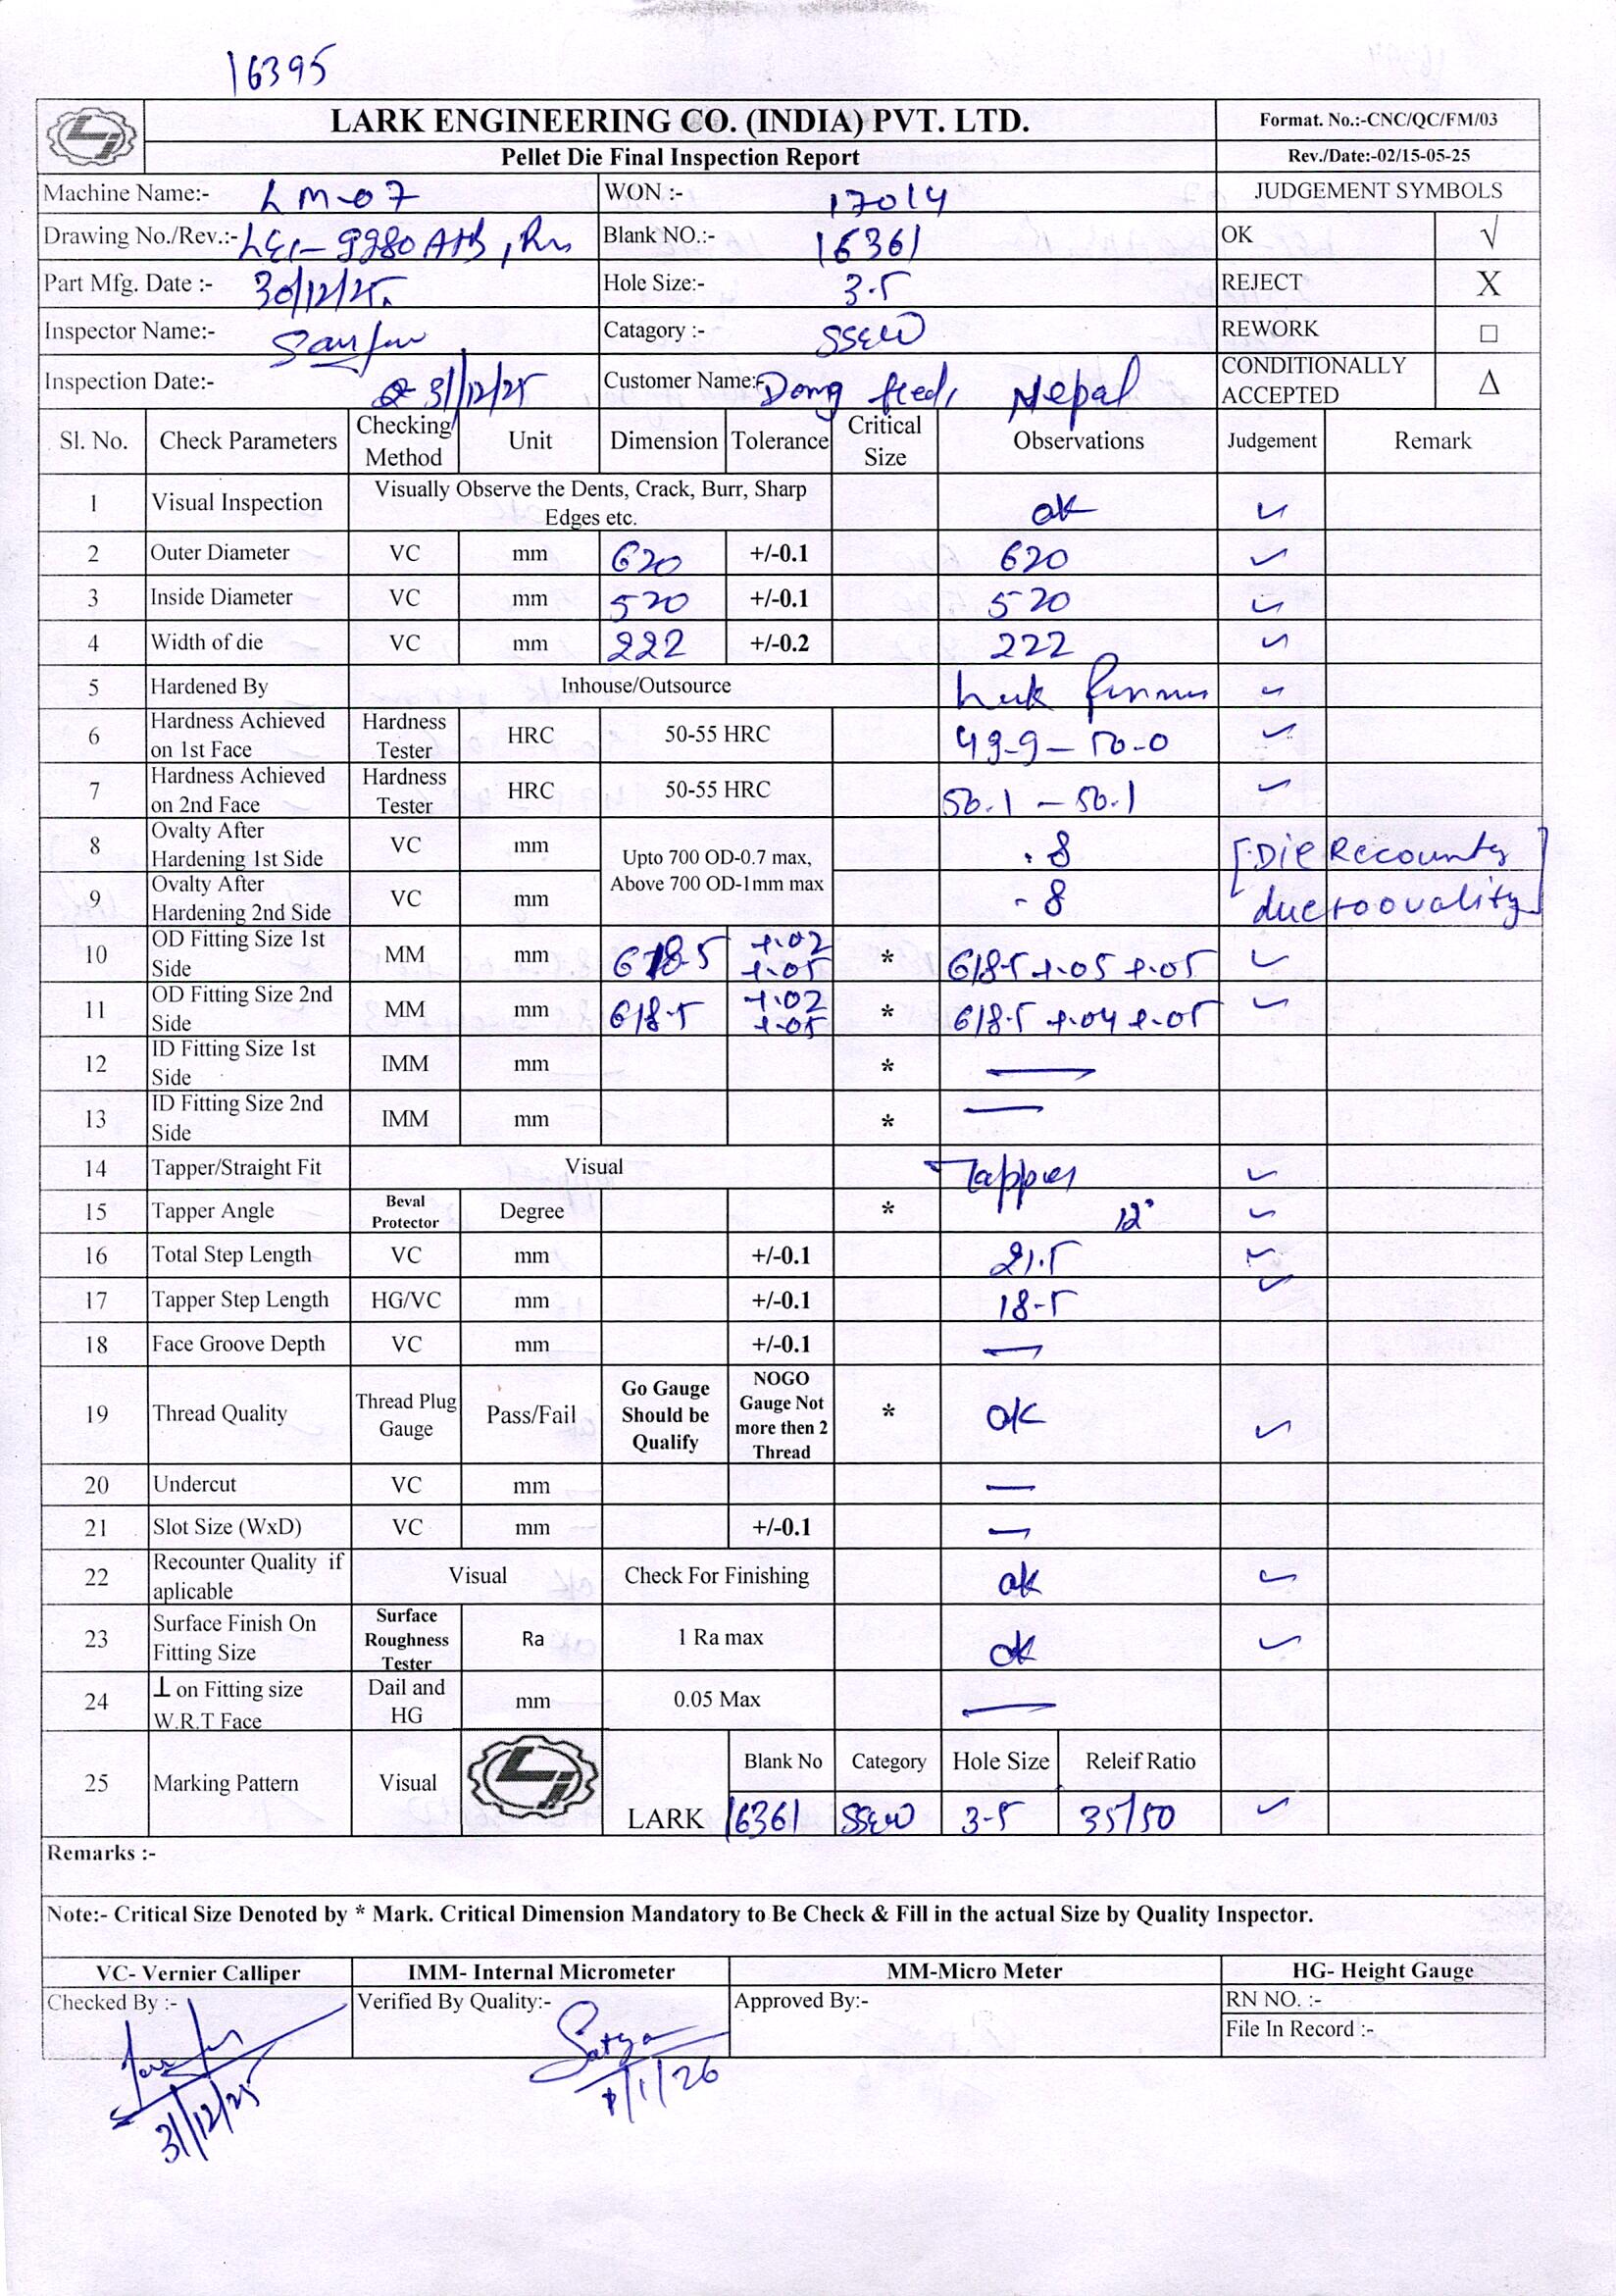 16395
LARK ENGINEERING CO. (INDIA) PVT. LTD.
Format. No.:-CNC/QC/FM/03
Pellet Die Final Inspection Report
Rev./Date:-02/15-05-25
Machine Name:- LM-07 WON :- 17014 JUDGEMENT SYMBOLS
Drawing No./Rev.:- Blank NO.:- 16361 OK √
Part Mfg. Date :- 30/12/25 Hole Size:- 3.5 REJECT X
Inspector Name:- Catagory :- SSEW REWORK □
Inspection Date:- 31/12/25 Customer Name:- Dong feed, Nepal CONDITIONALLY ACCEPTED Δ
Sl. No. Check Parameters Checking Method Unit Dimension Tolerance Critical Size Observations Judgement Remark
1 Visual Inspection Visually Observe the Dents, Crack, Burr, Sharp Edges etc. ok ✓
2 Outer Diameter VC mm 620 +/-0.1 620 ✓
3 Inside Diameter VC mm 520 +/-0.1 520 ✓
4 Width of die VC mm 222 +/-0.2 222 ✓
5 Hardened By Inhouse/Outsource ✓
6 Hardness Achieved on 1st Face Hardness Tester HRC 50-55 HRC 49.9 – 50.0 ✓
7 Hardness Achieved on 2nd Face Hardness Tester HRC 50-55 HRC 50.1 – 50.1 ✓
8 Ovalty After Hardening 1st Side VC mm Upto 700 OD-0.7 max, Above 700 OD-1mm max .8 [Die Recounter
9 Ovalty After Hardening 2nd Side VC mm .8 due to ovality]
10 OD Fitting Size 1st Side MM mm 618.5 +.02 +.05 * 618.5 +.05 +.05 ✓
11 OD Fitting Size 2nd Side MM mm 618.5 +.02 +.05 * 618.5 +.04 +.05 ✓
12 ID Fitting Size 1st Side IMM mm * —
13 ID Fitting Size 2nd Side IMM mm * —
14 Tapper/Straight Fit Visual Tapper ✓
15 Tapper Angle Beval Protector Degree * 12° ✓
16 Total Step Length VC mm +/-0.1 21.5 ✓
17 Tapper Step Length HG/VC mm +/-0.1 18.5 ✓
18 Face Groove Depth VC mm +/-0.1 —
19 Thread Quality Thread Plug Gauge Pass/Fail Go Gauge Should be Qualify NOGO Gauge Not more then 2 Thread * OK ✓
20 Undercut VC mm —
21 Slot Size (WxD) VC mm +/-0.1 —
22 Recounter Quality if aplicable Visual Check For Finishing ok ✓
23 Surface Finish On Fitting Size Surface Roughness Tester Ra 1 Ra max ok ✓
24 ⊥ on Fitting size W.R.T Face Dail and HG mm 0.05 Max —
25 Marking Pattern Visual LARK Blank No Category Hole Size Releif Ratio
16361 SSEW 3.5 35/50 ✓
Remarks :-
Note:- Critical Size Denoted by * Mark. Critical Dimension Mandatory to Be Check & Fill in the actual Size by Quality Inspector.
VC- Vernier Calliper IMM- Internal Micrometer MM-Micro Meter HG- Height Gauge
Checked By :- Verified By Quality:- Approved By:- RN NO. :-
File In Record :-
Satya
31/12/25 1/1/26